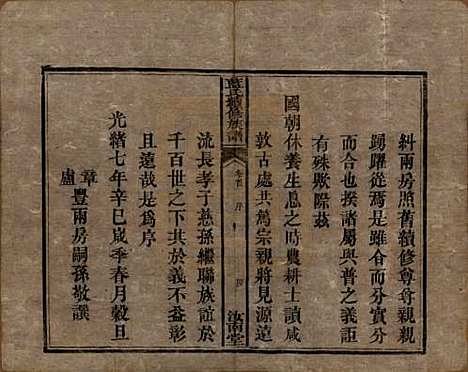 糾兩房照舊續修尊尊親親
踴躍從焉是雖合而分實分
而合也揆諸屬與普之義詎
有殊歟際茲
國朝休養生息之時農耕士讀咸
敦古處共篤宗親將見源遠
藍氏續修族譜
卷首 序
四
汝南堂
流長孝子慈孫繼聯族誼於
千百世之下共於義不益彰
且遠哉是為序
光緒七年辛巳歲季春月穀旦
章盧豐兩房嗣孫敬譔